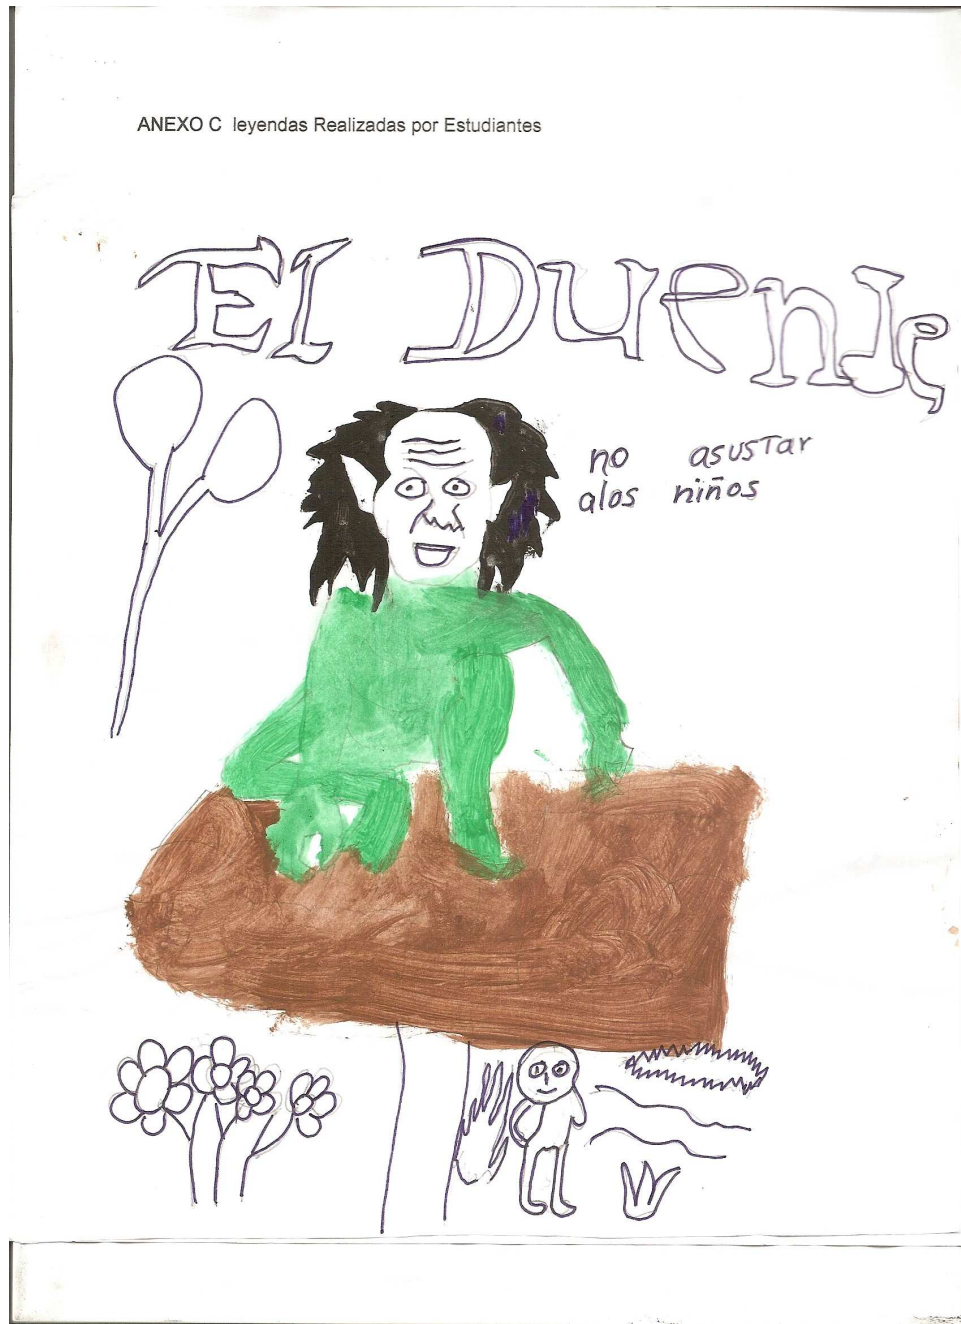 ANEXO C leyendas Realizadas por Estudiantes
El Duende
no asustar
alos niños